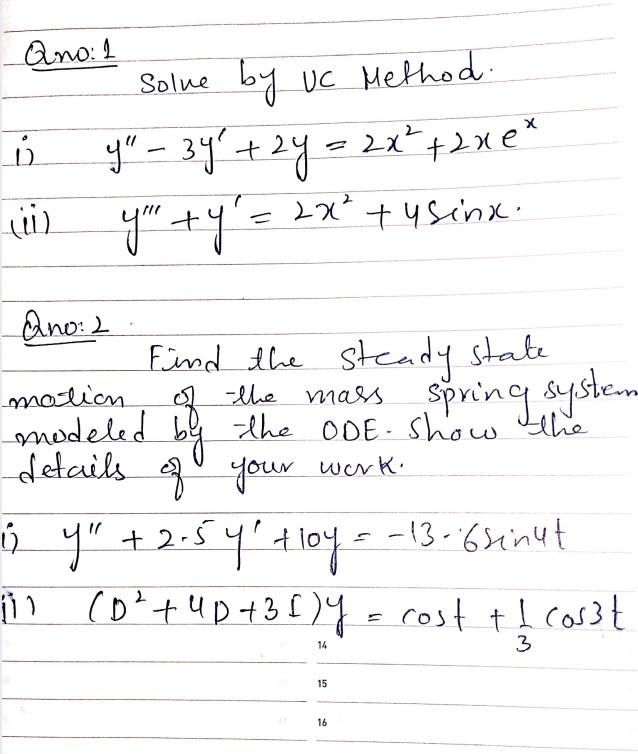 Qno: 1
Solve by UC Method.
i) y'' - 3y' + 2y = 2x² + 2xeˣ
(ii) y''' + y' = 2x² + 4 sinx.
Qno: 2
Find the steady state
motion of the mass spring system
modeled by the ODE. Show the
details of your work.
i) y'' + 2.5 y' + 10y = -13.6 sin4t
ii) (D² + 4D + 3I)y = cost + 1/3 cos3t
14
15
16